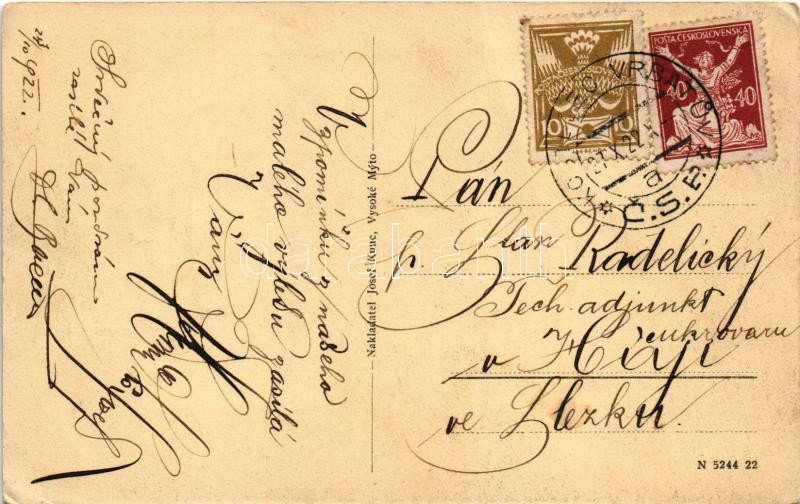 24/10 1922.
Srdečný pozdrav
zasílá Vám
Vzpomínku z našeho
malého výletu zasílá
Vám
Nakladatel Josef Konc, Vysoké Mýto
10 10
POŠTA ČESKOSLOVENSKÁ
40 40
VRBATŮV
Č.S.R.
Pán
p. Stan Radelický
Tech. adjunkt
cukrovaru
v Háji
ve Slezku.
N 5244 22
darabanth